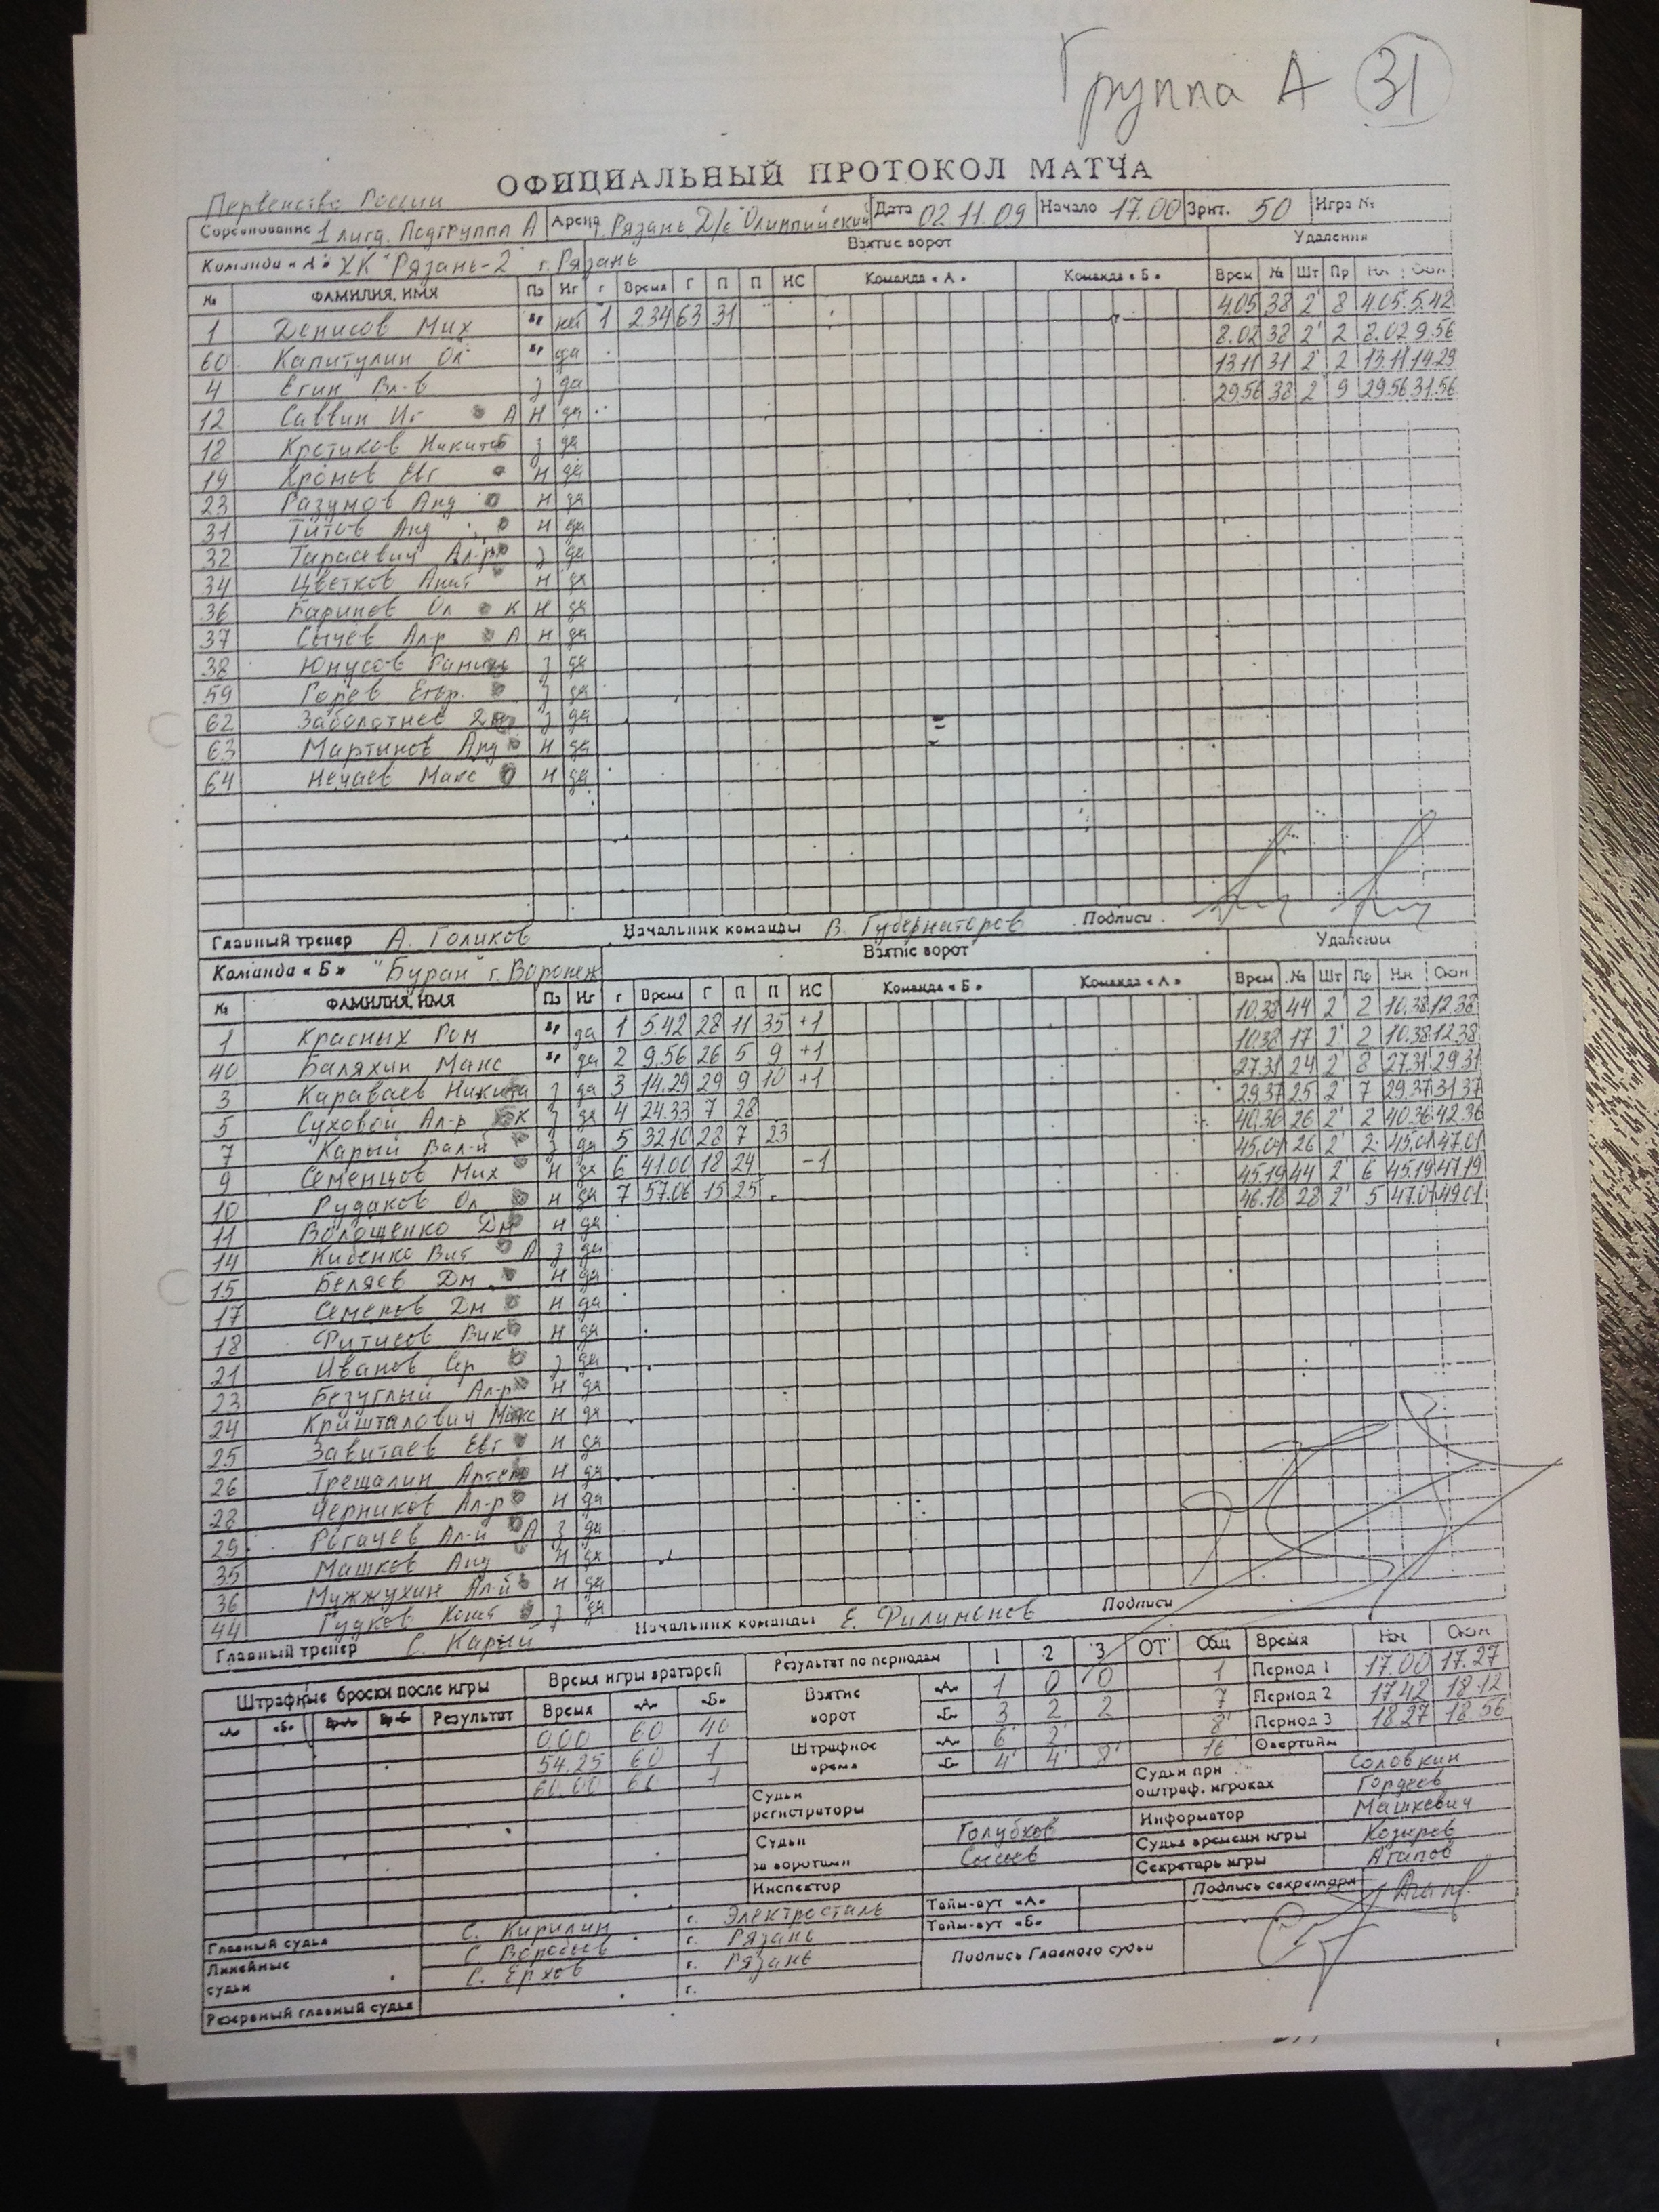 Группа А 31
ОФИЦИАЛЬНЫЙ ПРОТОКОЛ МАТЧА
Первенство России
Соревнование 1 лига. Подгруппа А Арена г. Рязань Д/с "Олимпийский" Дата 02.11.09 Начало 17.00 Зрит. 50 Игра №
Команда «А» ХК "Рязань-2" г. Рязань Взятие ворот Удаления
№ ФАМИЛИЯ, ИМЯ Пз Иг Г Время Г П П ИС Команда «А» Команда «Б» Врем № Шт Пр
1 Денисов Мих нет 1 2.34 63 31 4.05 38 2' 8 4.05 5.42
60 Капитулин Ол да 8.02 38 2' 2 8.02 9.56
4 Егин Вл-в з да 13.11 31 2' 2 13.11 14.29
12 Саввин Иг А Н да 29.56 38 2' 9 29.56 31.56
18 Кротиков Никита з да
19 Хромов Евг Н да
23 Разумов Анд Н да
31 Титов Анд Н да
32 Тарасевич Ал-р з да
34 Цветков Анат Н да
36 Баринов Ол К Н да
37 Сычев Ал-р А Н да
38 Юнусов з да
59 Горев Егор. з да
62 Заболотнев з да
63 Мартынов Анд Н да
64 Нечаев Макс Н да
Главный тренер А. Голиков Начальник команды В. Губернаторов Подписи
Команда «Б» "Буран" г. Воронеж Взятие ворот Удалении
№ ФАМИЛИЯ, ИМЯ Пз Иг Г Время Г П П ИС Команда «Б» Команда «А» Врем № Шт Пр Нч Окон
1 Красных Ром да 1 5.42 28 11 35 +1 10.38 44 2' 2 10.38 12.38
40 Баляхин Макс да 2 9.56 26 5 9 +1 10.38 17 2' 2 10.38 12.38
3 Караваев Никита з да 3 14.29 29 9 10 +1 27.31 24 2' 8 27.31 29.31
5 Суховой Ал-р К з да 4 24.33 7 28 29.37 25 2' 7 29.37 31.37
7 Карый Вал-й з да 5 32.10 28 7 23 40.36 26 2' 2 40.36 42.36
9 Семенцов Мих Н да 6 41.00 18 24 -1 45.01 26 2' 2 45.01 47.01
10 Рудаков Ол Н да 7 57.06 15 25 45.19 44 2' 6 45.19 47.19
11 Волощенко Дм Н да 46.18 28 2' 5 47.01 49.01
14 Киденко Вит А з да
15 Беляев Дм Н да
17 Семенов Дм Н да
18 Фитисов Вик Н да
21 Иванов Сер з да
23 Безуглый Ал-р Н да
24 Кришталович Макс Н да
25 Завитаев Евг Н да
26 Трещалин Артем Н да
28 Черников Ал-р Н да
29 Рогачев Ал-й А з да
35 Машков Анд Н да
36 Мужжухин Ал-й Н да
44 Гудков Конст з да
Главный тренер С. Карый Начальник команды Е. Филимонов Подписи
Штрафные броски после игры Время игры вратарей Результат по периодам 1 2 3 ОТ Общ Время Нач Окон
«А» «Б» Вр-А Вр-Б Результат Время «А» «Б»
Взятие ворот «А» 1 0 0 1 Период 1 17.00 17.27
«Б» 3 2 2 7 Период 2 17.42 18.12
0.00 60 40
Штрафное время «А» 6' 2' 8' Период 3 18.27 18.56
54.25 60 1
«Б» 4' 4' 8' 16' Овертайм
60.00 60 1
Судьи регистраторы
Судьи при оштраф. игроках Соловкин
Гордеев
Судьи за воротами Голубков
Сысоев
Информатор Машкевич
Судья времени игры Козырев
Инспектор
Секретарь игры Агапов
Главный судья С. Кирилин г. Электросталь Тайм-аут «А» Подпись секретаря
Линейные судьи С Воробьев г. Рязань Тайм-аут «Б»
С. Ерхов г. Рязань Подпись Главного судьи
Резервный главный судья г.